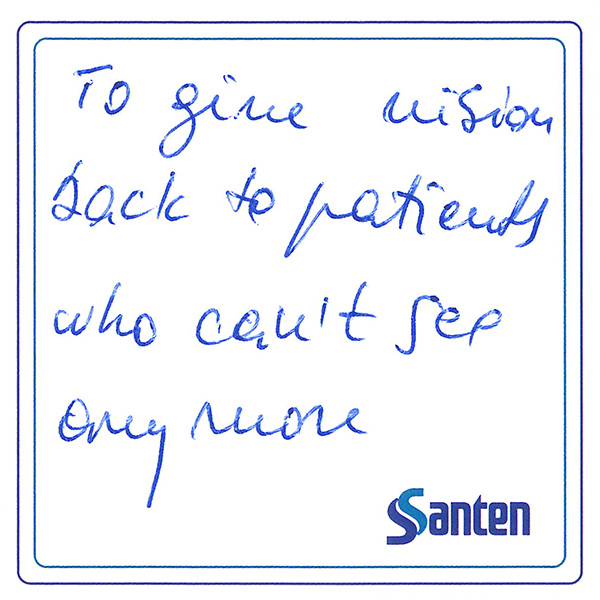 To give vision
back to patients
who can't see
any more
Santen